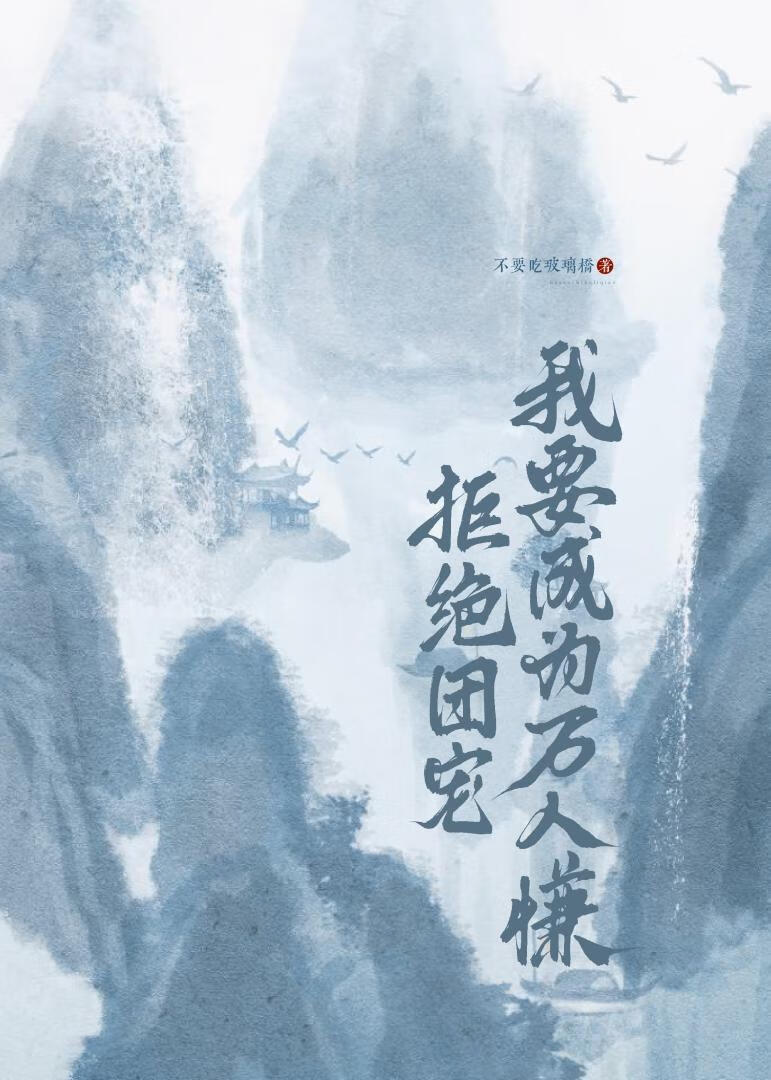 不要吃玻璃橋 著
我要成为万人嫌
拒绝团宠